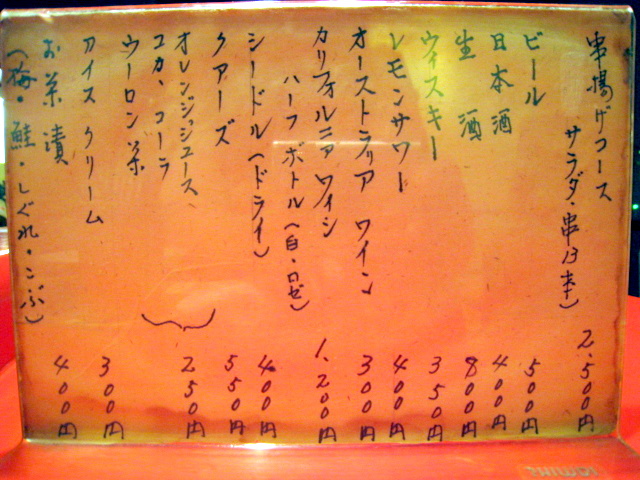 串揚げコース 2,500円
サラダ・串13本
ビール 500円
日本酒 400円
生酒 800円
ウィスキー 350円
レモンサワー 400円
オーストラリア ワイン 300円
カリフォルニア ワイン 1,200円
ハーフ ボトル(白・ロゼ)
シードル(ドライ) 400円
クアーズ 550円
オレンジジュース、
コカ、コーラ 250円
ウーロン茶
アイス クリーム 300円
お茶漬 400円
(梅・鮭・しぐれ・こぶ)